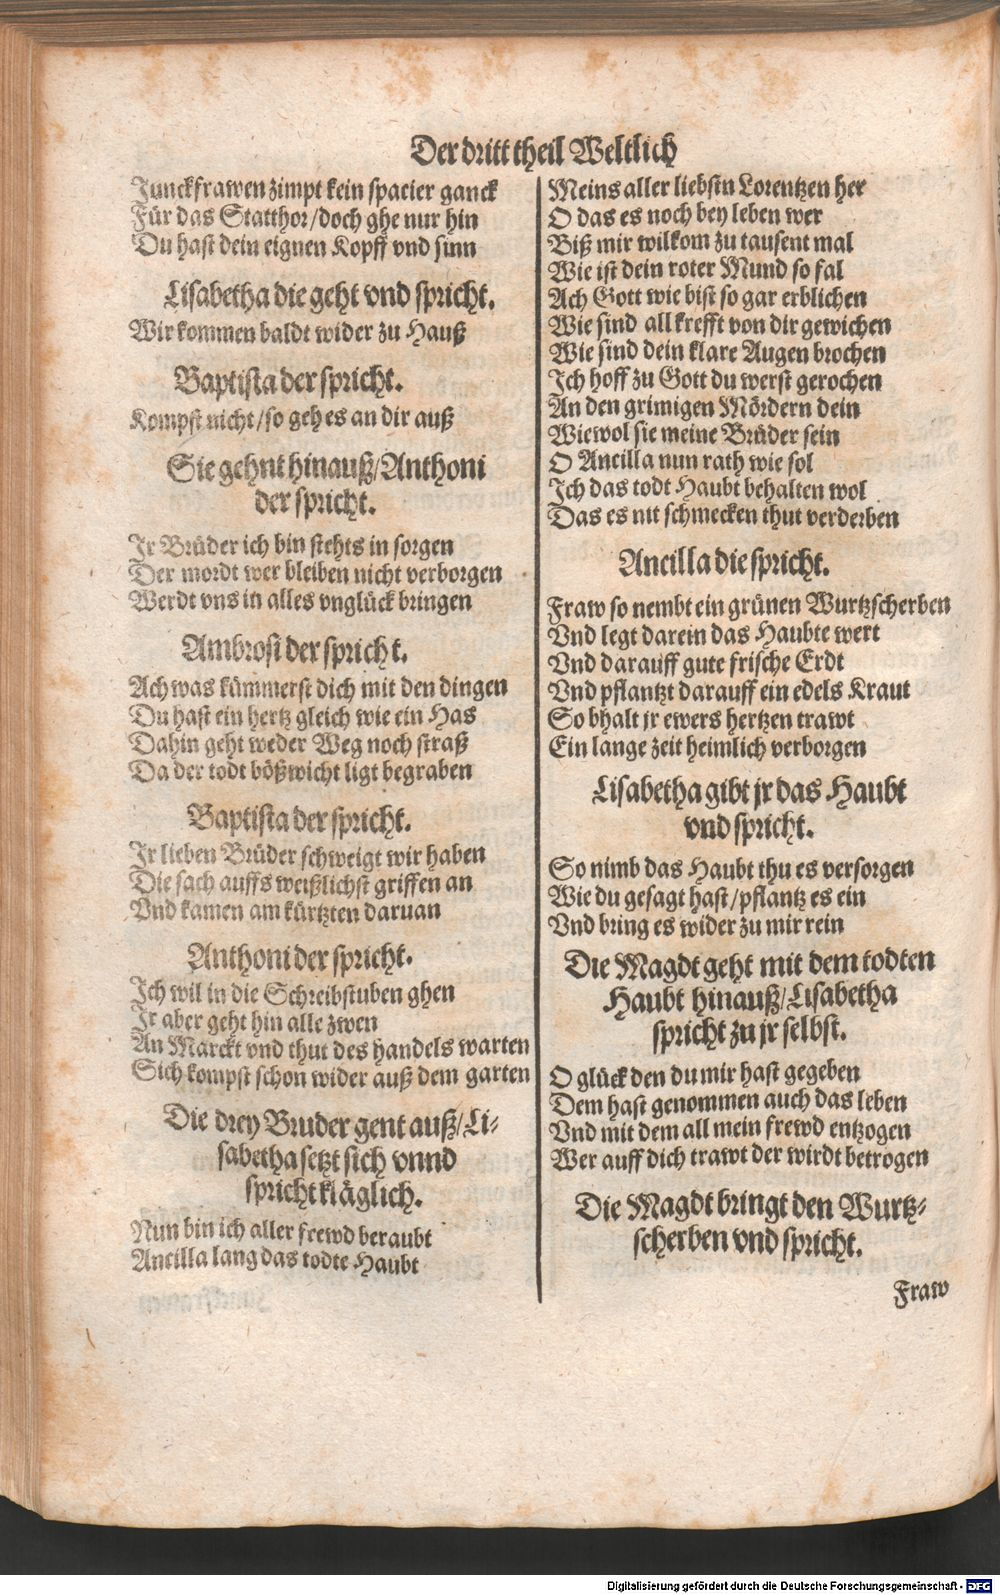 Der dritt theil Weltlich
Junckfrawen zimpt kein spacier ganck
Für das Statthor/doch ghe nur hin
Du hast dein eignen Kopff vnd sinn
Lisabetha die geht vnd spricht.
Wir kommen baldt wider zu Hauß
Baptista der spricht.
Kompst nicht/so geh es an dir auß
Sie gehnt hinauß/Anthoni
der spricht.
Jr Brüder ich bin stehts in sorgen
Der mordt wer bleiben nicht verborgen
Werdt vns in alles vnglück bringen
Ambrosi der spricht.
Ach was kümmerst dich mit den dingen
Du hast ein hertz gleich wie ein Has
Dahin geht weder Weg noch straß
Da der todt bößwicht ligt begraben
Baptista der spricht.
Jr lieben Brüder schweigt wir haben
Die sach auffs weißlichst griffen an
Vnd kamen am kürtzten daruan
Anthoni der spricht.
Ich wil in die Schreibstuben ghen
Jr aber geht hin alle zwen
An Marckt vnd thut des handels warten
Sich kompst schon wider auß dem garten
Die drey Bruder gent auß/Li-
sabetha setzt sich vnnd
spricht kläglich.
Nun bin ich aller frewd beraubt
Ancilla lang das todte Haubt
Meins aller liebstn Lorentzen her
O das es noch bey leben wer
Biß mir wilkom zu tausent mal
Wie ist dein roter Mund so fal
Ach Gott wie bist so gar erblichen
Wie sind all krefft von dir gewichen
Wie sind dein klare Augen brochen
Ich hoff zu Gott du werst gerochen
An den grimigen Mördern dein
Wiewol sie meine Brüder sein
O Ancilla nun rath wie sol
Ich das todt Haubt behalten wol
Das es nit schmecken thut verderben
Ancilla die spricht.
Fraw so nembt ein grünen Wurtzscherben
Vnd legt darein das Haubte wert
Vnd darauff gute frische Erdt
Vnd pflantzt darauff ein edels Kraut
So bhalt jr ewers hertzen trawt
Ein lange zeit heimlich verborgen
Lisabetha gibt jr das Haubt
vnd spricht.
So nimb das Haubt thu es versorgen
Wie du gesagt hast/pflantz es ein
Vnd bring es wider zu mir rein
Die Magdt geht mit dem todten
Haubt hinauß/Lisabetha
spricht zu jr selbst.
O glück den du mir hast gegeben
Dem hast genommen auch das leben
Vnd mit dem all mein frewd entzogen
Wer auff dich trawt der wirdt betrogen
Die Magdt bringt den Wurtz-
scherben vnd spricht.
Fraw
Digitalisierung gefördert durch die Deutsche Forschungsgemeinschaft - DFG